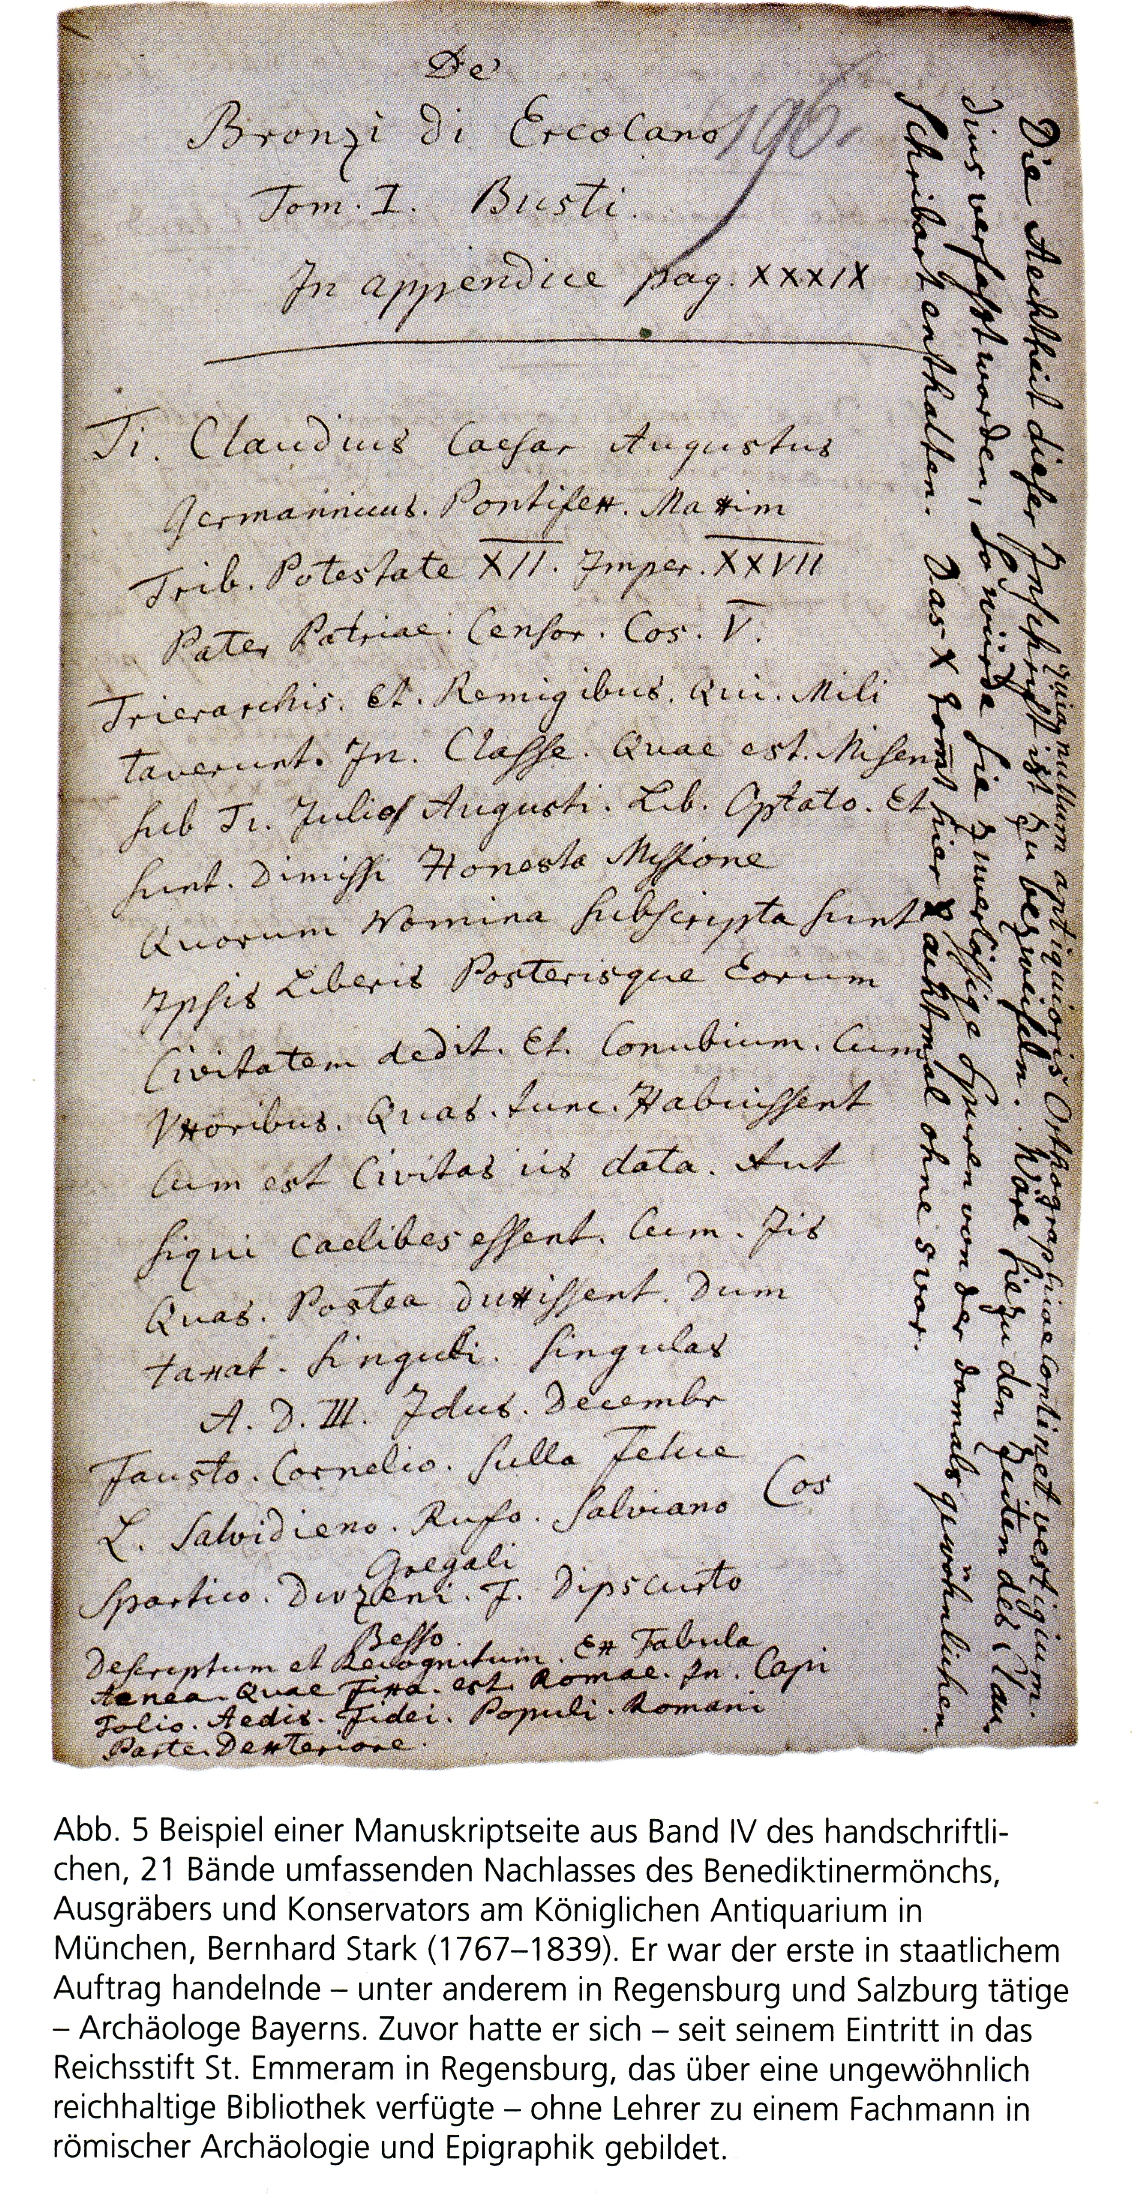 De'
Bronzi di Ercolano
196.
Tom. I. Busti.
In appendice pag. XXXIX
Ti. Claudius Caesar Augustus
Germannicus. Pontifex. Maxim
Trib. Potestate XII. Imper. XXVII
Pater Patriae. Censor. Cos. V.
Trierarchis. Et. Remigibus. Qui. Mili
taverunt. In. Classe. Quae est. Miseni
sub Ti. Julio Augusti. Lib. Optato. Et
sunt. Dimissi Honesta Missione
Quorum Nomina subscripta sunt
Ipsis Liberis Posterisque Eorum
Civitatem dedit. Et. Conubium. Cum
Vxoribus. Quas. tunc. Habuissent
Cum est Civitas iis data. Aut
siqui caelibes essent. Cum. Iis
Quas. Postea duxissent. Dum
taxat. singuli. singulas
A. D. III. Idus. Decembr
Fausto. Cornelio. sulla Felice
L. Salvidieno. Rufo. Salviano Cos
Gregali
Spartico. Diuzeni. F. Dipscurto
Besso.
Descriptum et Recognitum. Ex Tabula
Aenea. Quae Fixa. est. Romae. In. Capi
tolio. Aedis. Fidei. Populi. Romani
Parte. Dexteriore.
quia nullum antiquioris Orthographiae continet vestigium.
Die Aechtheit dieser Inschrift ist zu bezweifeln. Wäre sie zu den Zeiten des Clau
dius verfasst worden, so würde sie zuverlässige Spuren von der damals gewöhnlichen
Schribart enthalten. Das X komt hier achtmal ohne s vor.
Abb. 5 Beispiel einer Manuskriptseite aus Band IV des handschriftli-
chen, 21 Bände umfassenden Nachlasses des Benediktinermönchs,
Ausgräbers und Konservators am Königlichen Antiquarium in
München, Bernhard Stark (1767–1839). Er war der erste in staatlichem
Auftrag handelnde – unter anderem in Regensburg und Salzburg tätige
– Archäologe Bayerns. Zuvor hatte er sich – seit seinem Eintritt in das
Reichsstift St. Emmeram in Regensburg, das über eine ungewöhnlich
reichhaltige Bibliothek verfügte – ohne Lehrer zu einem Fachmann in
römischer Archäologie und Epigraphik gebildet.